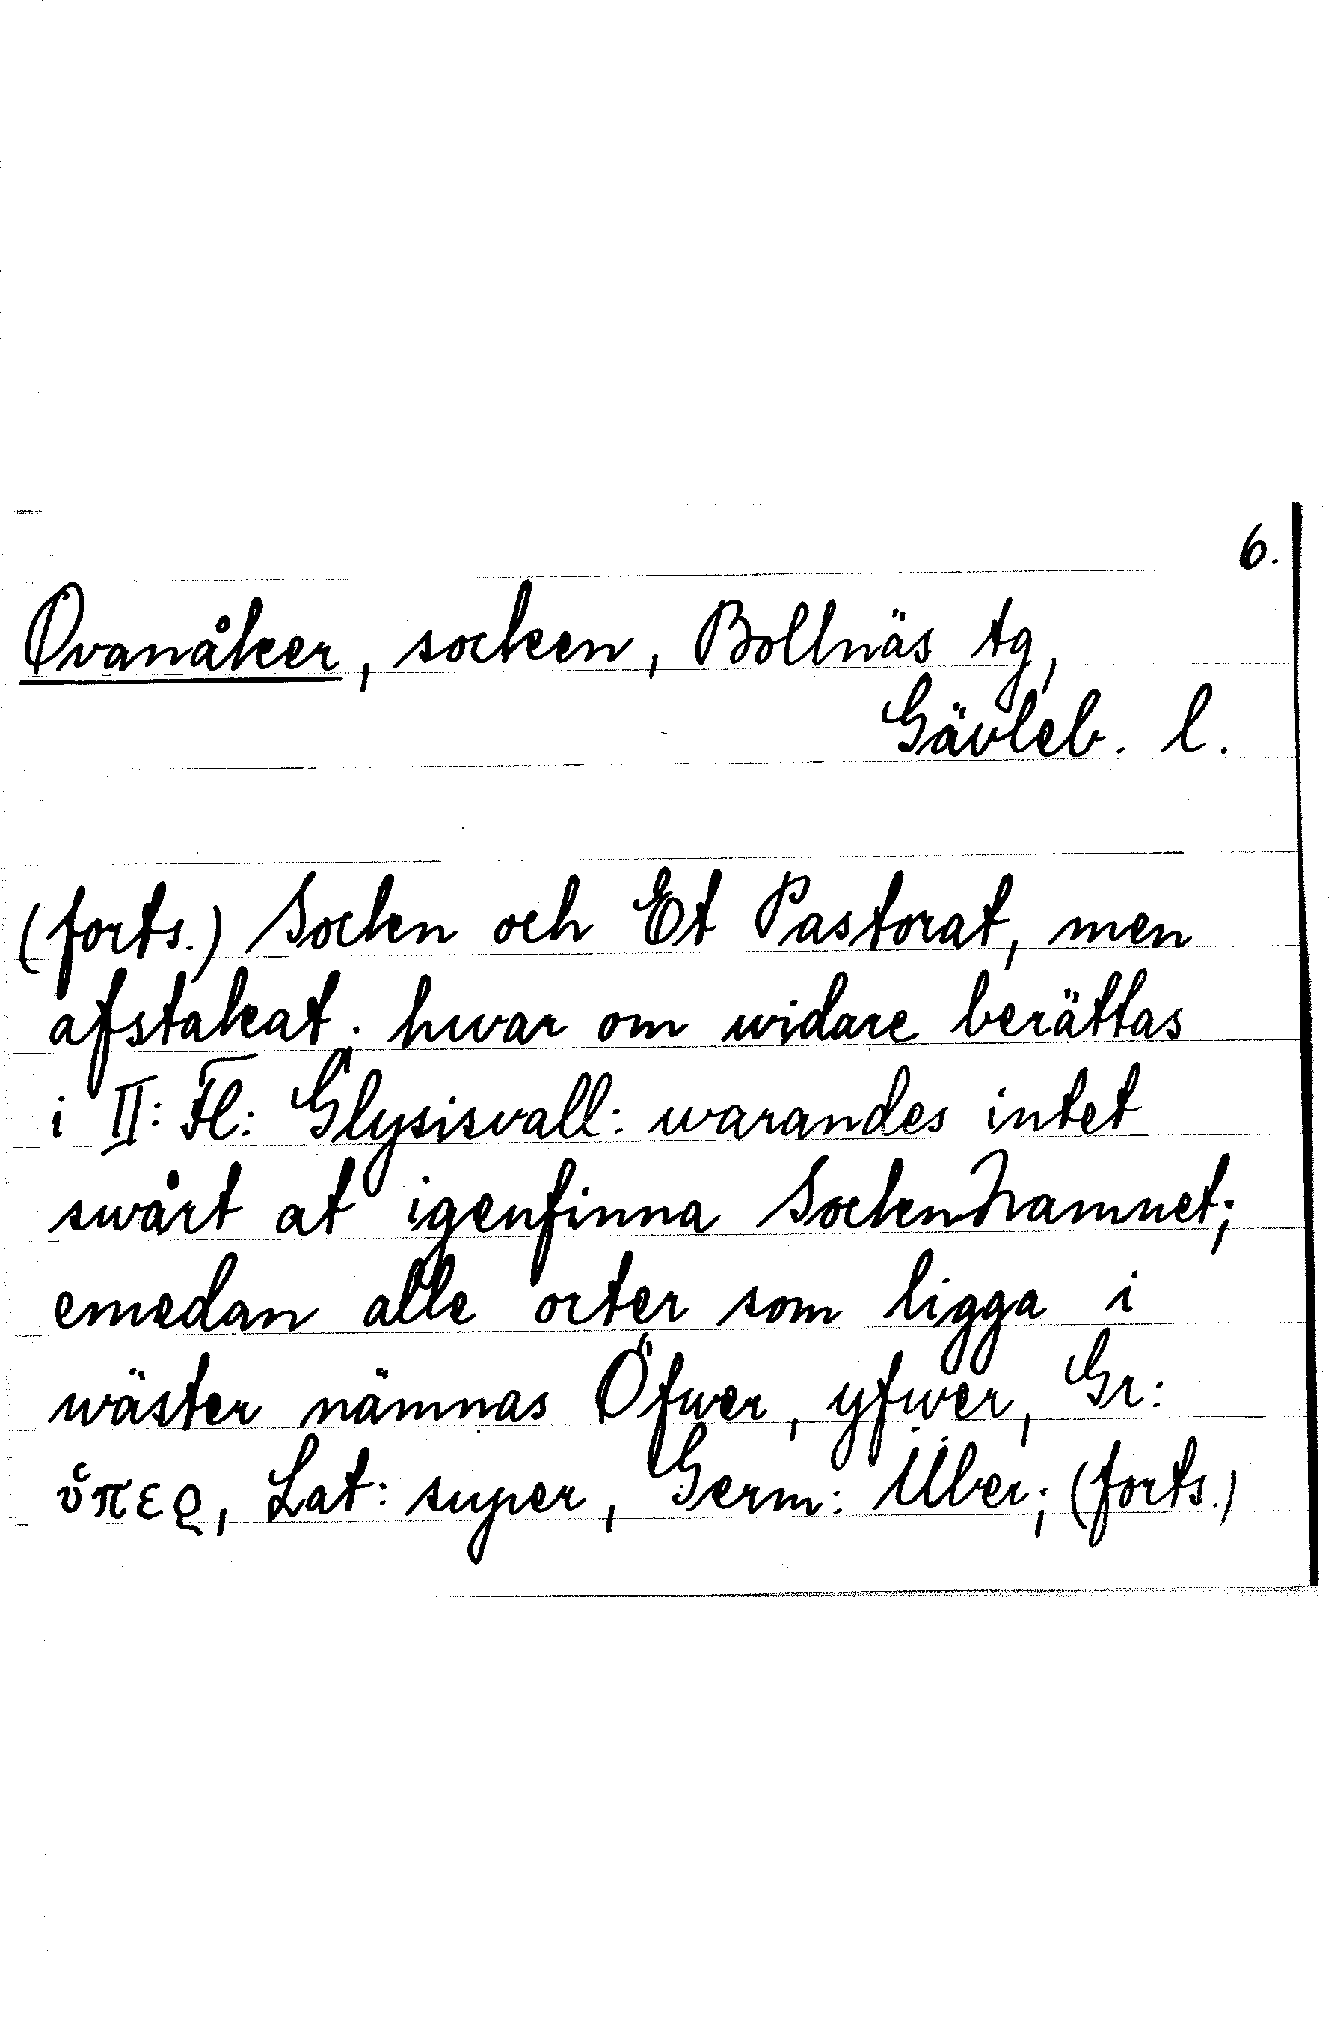 6.
Ovanåker, socken, Bollnäs tg,
Gävleb. l.
(forts.) Sockn och Et Pastorat, men
afstakat. hwar om widare berättas
i II: Fl: Glysisvall: warandes intet
swårt at igenfinna Sockn hamnet;
emedan alle orter som ligga i
wäster nämnas Öfwer, yfwer, Gr:
ὑπερ, Lat: super, Germ: Über; (forts.)